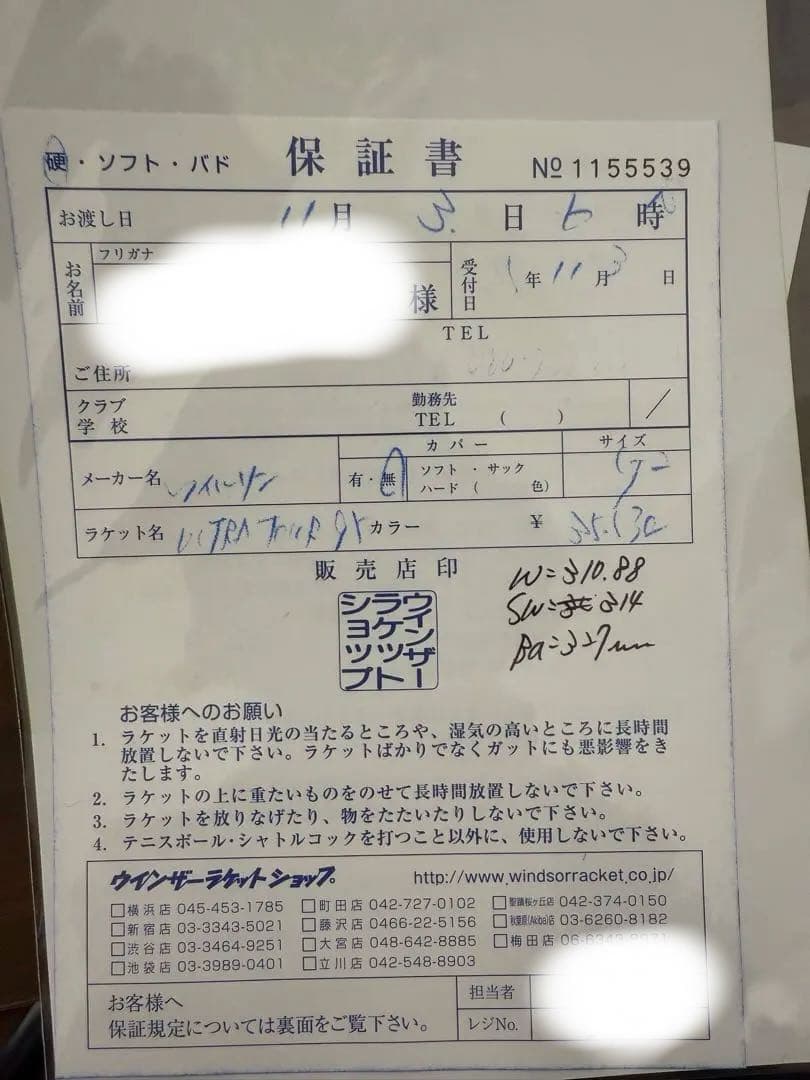 硬・ソフト・バド 保証書 № 1155539
お渡し日 11月 3日 6時
お名前 フリガナ 様 受付日 年11月3日
TEL
ご住所
クラブ 学校 勤務先 TEL ( ) /
メーカー名 ウイルソン 有・無 カバー ソフト・サック ハード( 色) サイズ
ラケット名 ULTRA TOUR カラー ¥
販売店印
ウインザーラケットショップ
W=310.88
SW= 314
Ba=327mm
お客様へのお願い
1. ラケットを直射日光の当たるところや、湿気の高いところに長時間
放置しないで下さい。ラケットばかりでなくガットにも悪影響をき
たします。
2. ラケットの上に重たいものをのせて長時間放置しないで下さい。
3. ラケットを放りなげたり、物をたたいたりしないで下さい。
4. テニスボール・シャトルコックを打つこと以外に、使用しないで下さい。
ウインザーラケットショップ http://www.windsorracket.co.jp/
□横浜店 045-453-1785 □町田店 042-727-0102 □聖蹟桜ヶ丘店 042-374-0150
□新宿店 03-3343-5021 □藤沢店 0466-22-5156 □秋葉原(Akiba)店 03-6260-8182
□渋谷店 03-3464-9251 □大宮店 048-642-8885 □梅田店
□池袋店 03-3989-0401 □立川店 042-548-8903
お客様へ
保証規定については裏面をご覧下さい。
担当者
レジNo.